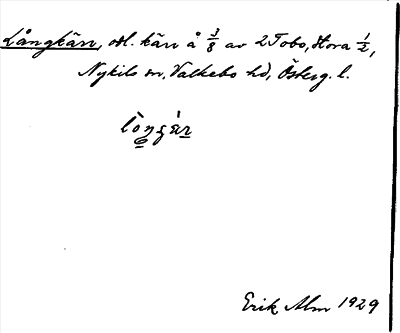 Långkärr, osl. kärr å 3/8 av 2 Tobo, Stora 1/2,
Nykils sn, Valkebo hd, Österg. l.
Erik Alm 1929